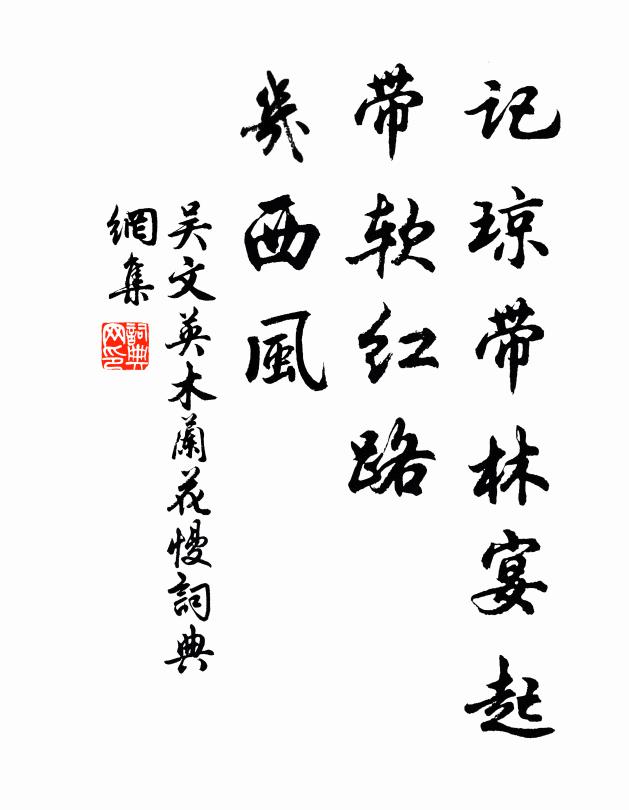 记琼带林宴起
带软红路
幾西風
吴文英木蘭花慢詞典
網集
詞典
网印